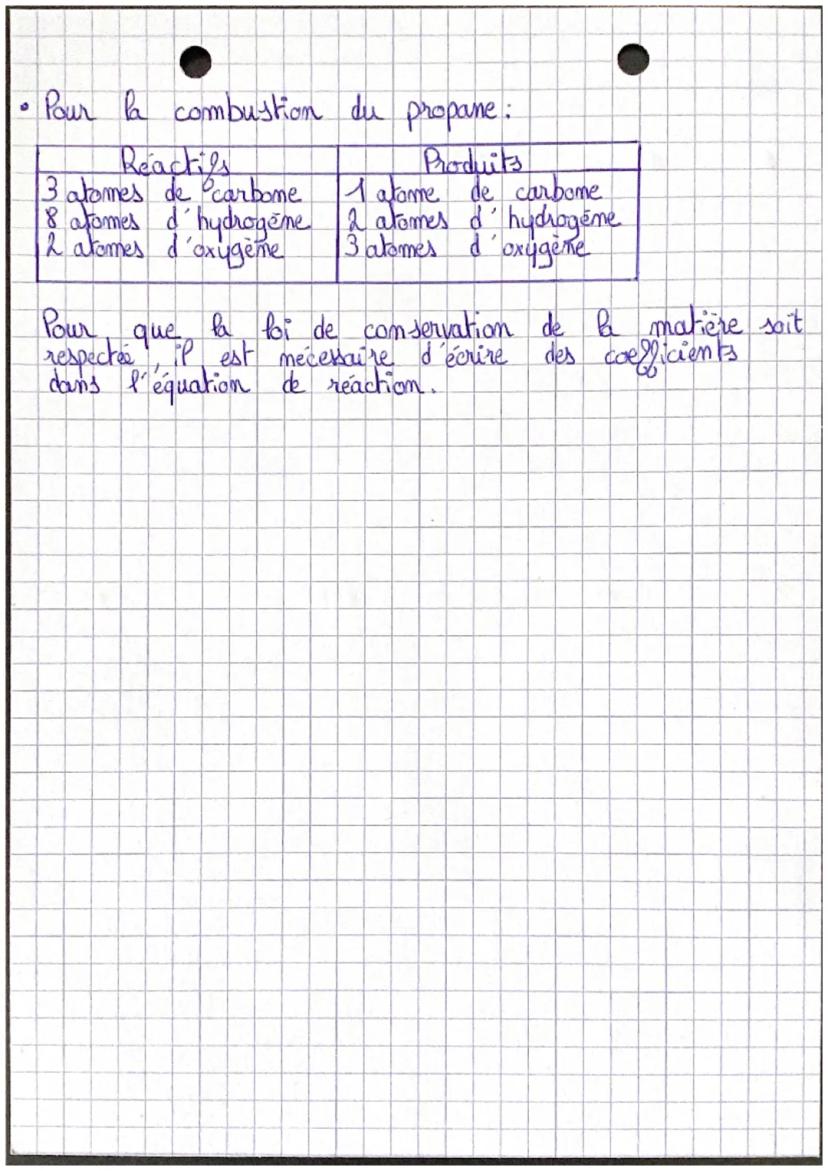 • Pour la combustion du propane :
Réactifs Produits
3 atomes de carbone 1 atome de carbone
8 atomes d'hydrogène 2 atomes d'hydrogène
2 atomes d'oxygène 3 atomes d'oxygène
Pour que la loi de conservation de la matière soit
respectée, il est nécessaire d'écrire des coefficients
dans l'équation de réaction.